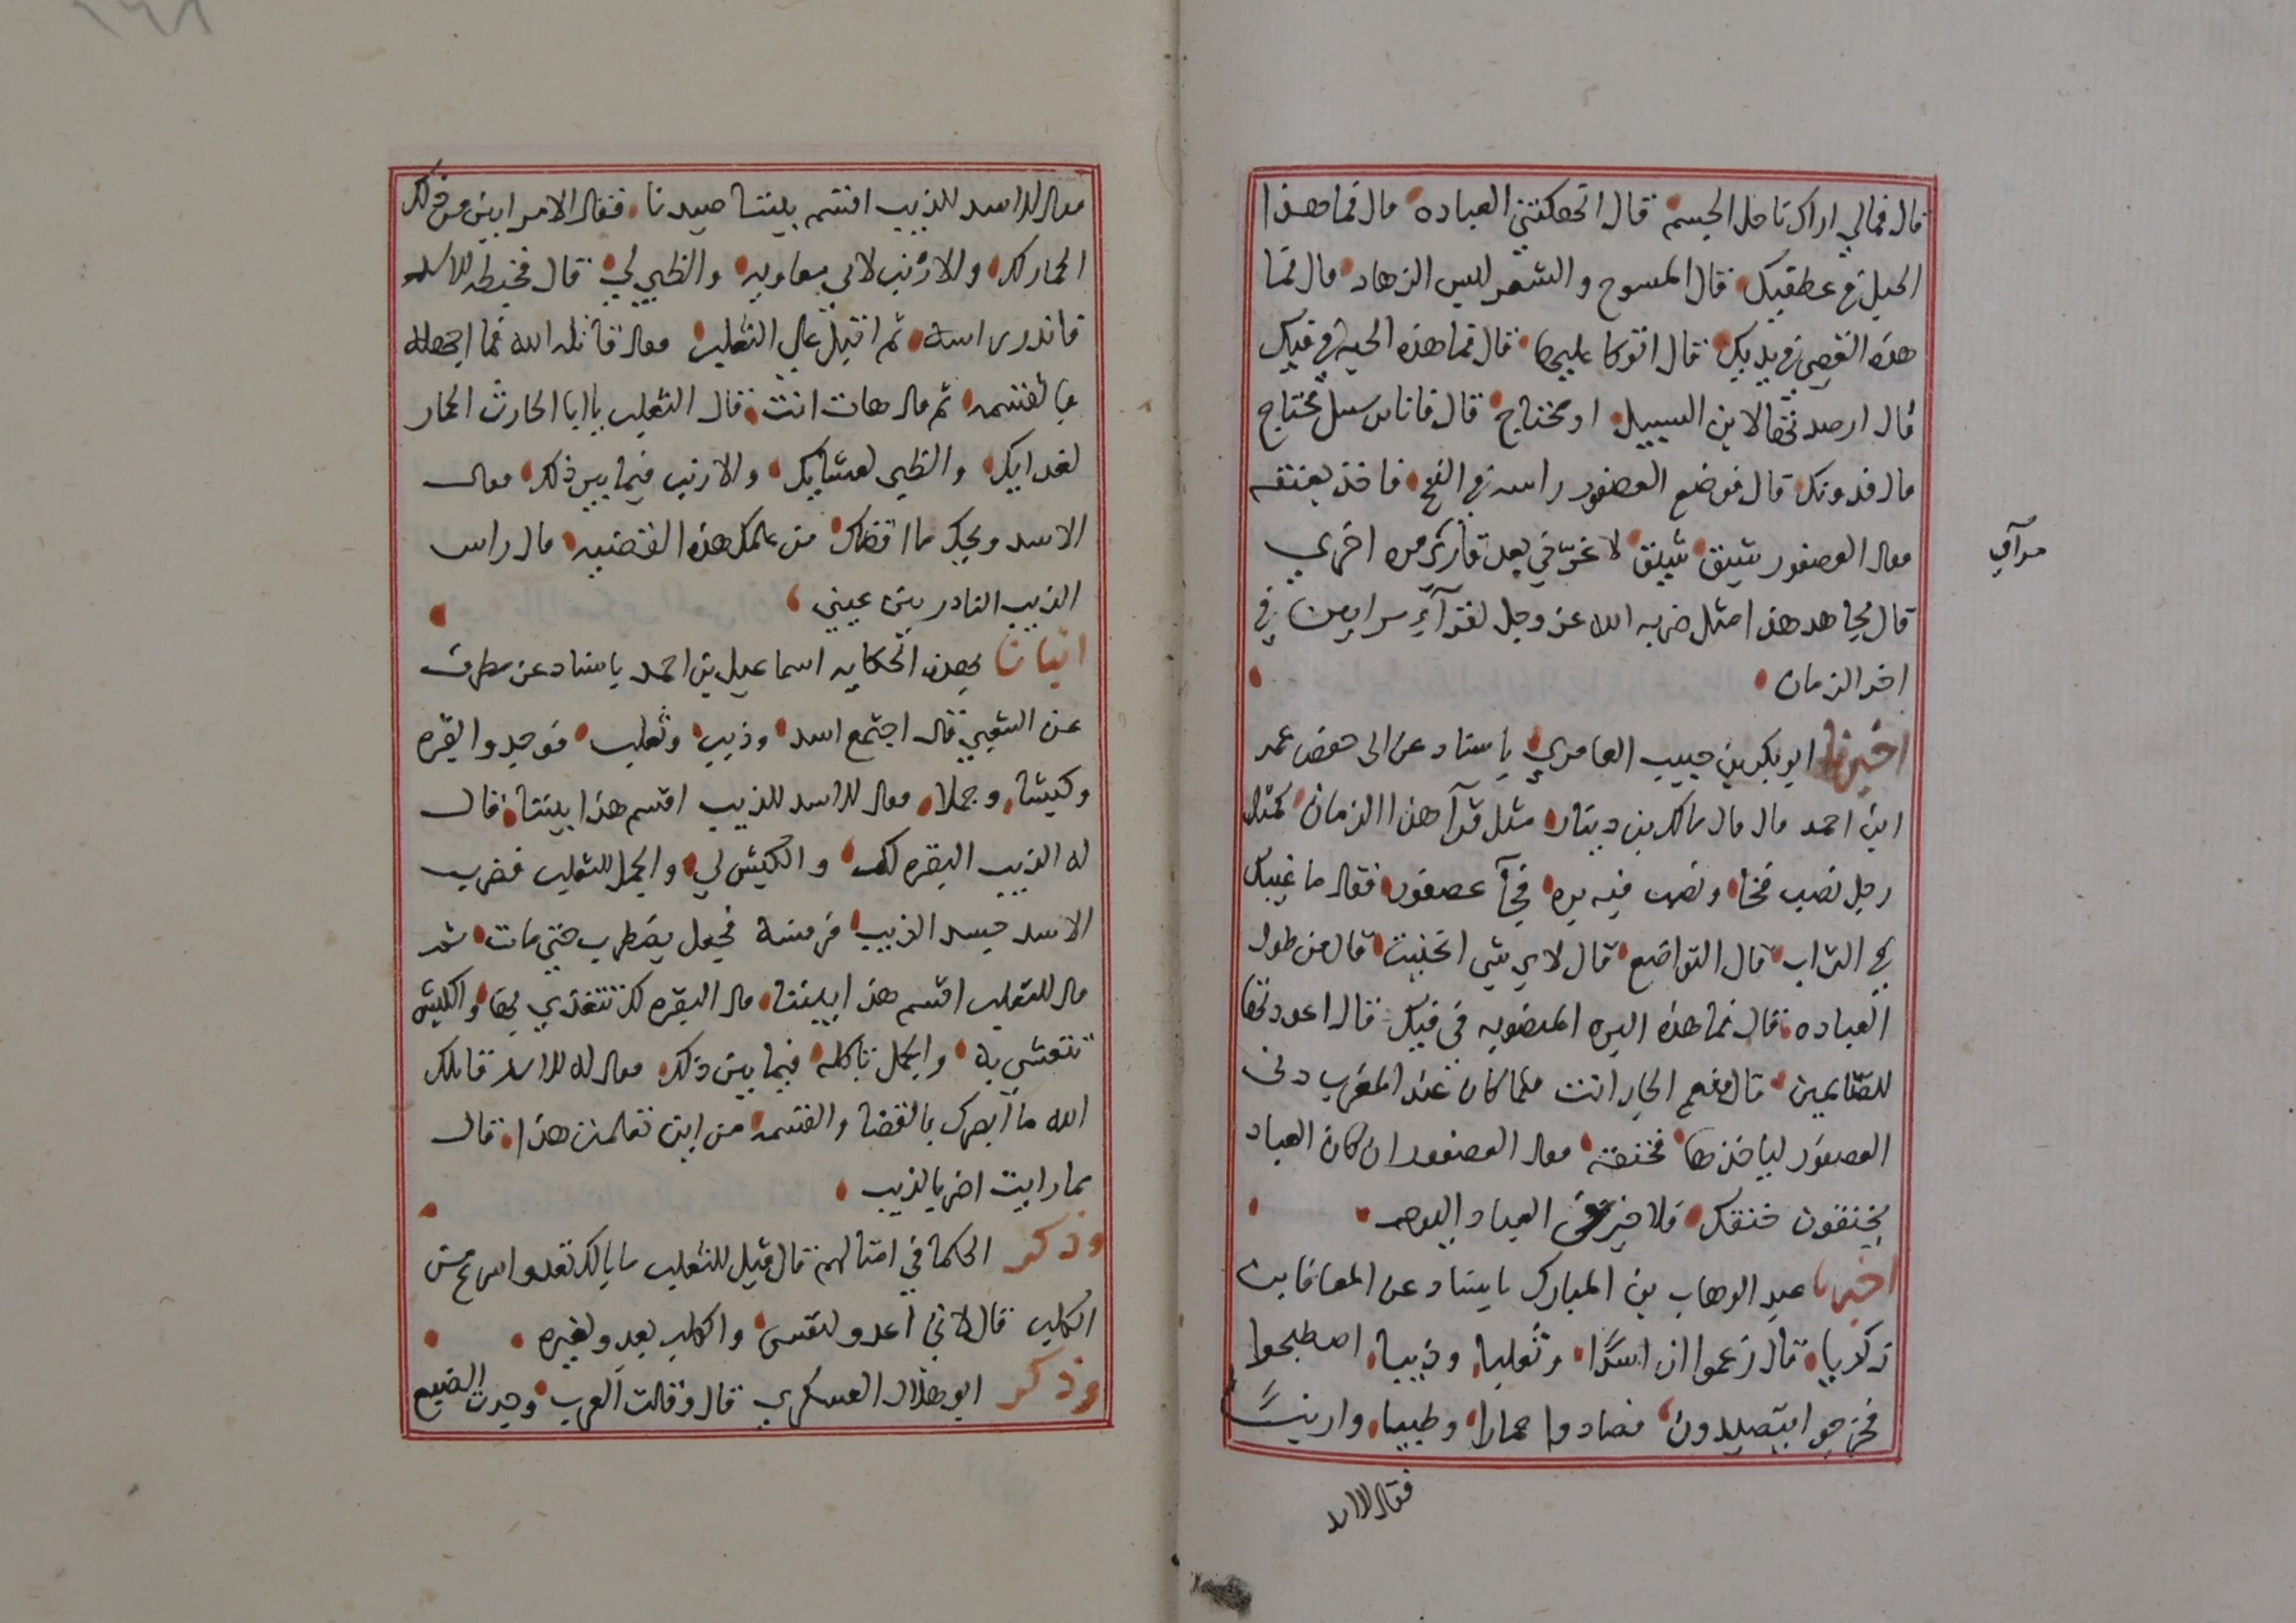 قال فمالي اراك ناحل الجسم قال انحكتني العباده قال فما هذا
الحبل في عطفيك قال المسوح والشعر لبس الزهاد قال فما
هذه العصى في يديك قال اتوكا عليها قال فما هذه الحبه في فيك
قال ارصدتها لابن السبيل او محتاج قال فانا بن سبيل محتاج
قال فدونك قال فوضع العصفور راسه في الفخ فاخذ بعنقه
فقال العصفور شينق شينق لا غرني بعدك قارئ مره اخري
مرآي
قال مجاهد هذا مثل ضربه الله عز وجل لقرآء مرايين في
اخر الزمان
اخبرنا ابو بكر بن حبيب العامري باسناد عن ابي حفص عمر
ابن احمد قال قال مالك بن دينار مثل قرآ هذا الزمان كمثل
رجل نصب فخا ونصب فيه بره فجآ عصفور فقال ما غيبك
في التراب قال التواضع قال لاي شي انحنيت قال من طول
العباده قال فما هذه البره المنصوبه في فيك قال اعددتها
للصائمين قال فنعم الجار انت فلما كان عند المغرب دنى
العصفور لياخذها فخنقه فقال العصفور ان كان العباد
يخنقون خنقك فلا خير في العباد اليوم
اخبرنا عبد الوهاب بن المبارك باسناد عن المعافا بن
زكريا قال زعموا ان اسدًا وثعلبا وذيبا اصطحبوا
فخرجوا يتصيدون فصادوا حمارا وظبيا وارنبًا
فقال الاسد
فقال الاسد للذيب اقسم بيننا صيدنا فقال الامر ابين من ذلك
الحمار لك والارنب لابي معاويه والظبي لي قال فخبطه الاسد
فاندر راسه ثم اقبل على الثعلب فقال قاتله الله فما اجهله
بالقسمه ثم قال هات انت قال الثعلب يا ابا الحارث الحمار
لغدايك والظبي لعشايك والارنب فيما بين ذلك فقال
الاسد ويحك ما اقضاك من علمك هذه القضيه قال راس
الذيب النادر بين عيني
انبانا بهذه الحكايه اسماعيل بن احمد باسناد عن مطرف
عن الشعبي قال اجتمع اسد وذيب وثعلب فوجدوا بقره
وكبشا وجملا فقال الاسد للذيب اقسم هذا بيننا قال
له الذيب البقره لك والكبش لي والجمل للثعلب فضرب
الاسد جسد الذيب فجعل يضطرب حتى مات ثم
قال للثعلب اقسم هذا بيننا قال البقره لك تتغدي بها والكبش
تتعشي به والجمل تاكله فيما بين ذلك فقال له الاسد قاتلك
الله ما ابصرك بالقضا والقسمه من اين تعلمت هذا قال
بما رايت اضر بالذيب
وذكر الحكما في امثالهم قال قيل للثعلب ما بالك تعدو اسرع من
الكلب قال لاني اعدو لنفسي والكلب يعدو لغيره
وذكر ابو هلال العسكري قال وقالت العرب وجدت الضبع